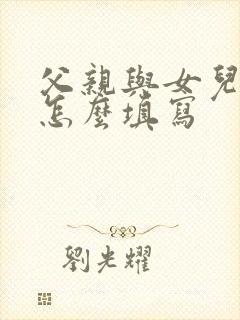 父親與女兒
怎麼填寫
劉光耀